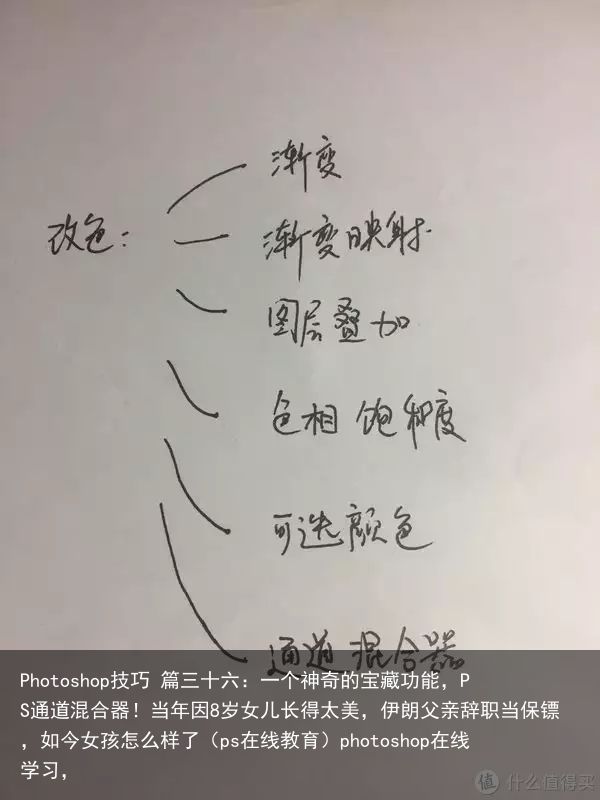 渐变
改色:
渐变映射
图层叠加
色相 饱和度
可选颜色
通道混合器
Photoshop技巧 篇三十六：一个神奇的宝藏功能，P
S通道混合器！当年因8岁女儿长得太美，伊朗父亲辞职当保镖
，如今女孩怎么样了（ps在线教育）photoshop在线
学习，
值 什么值得买